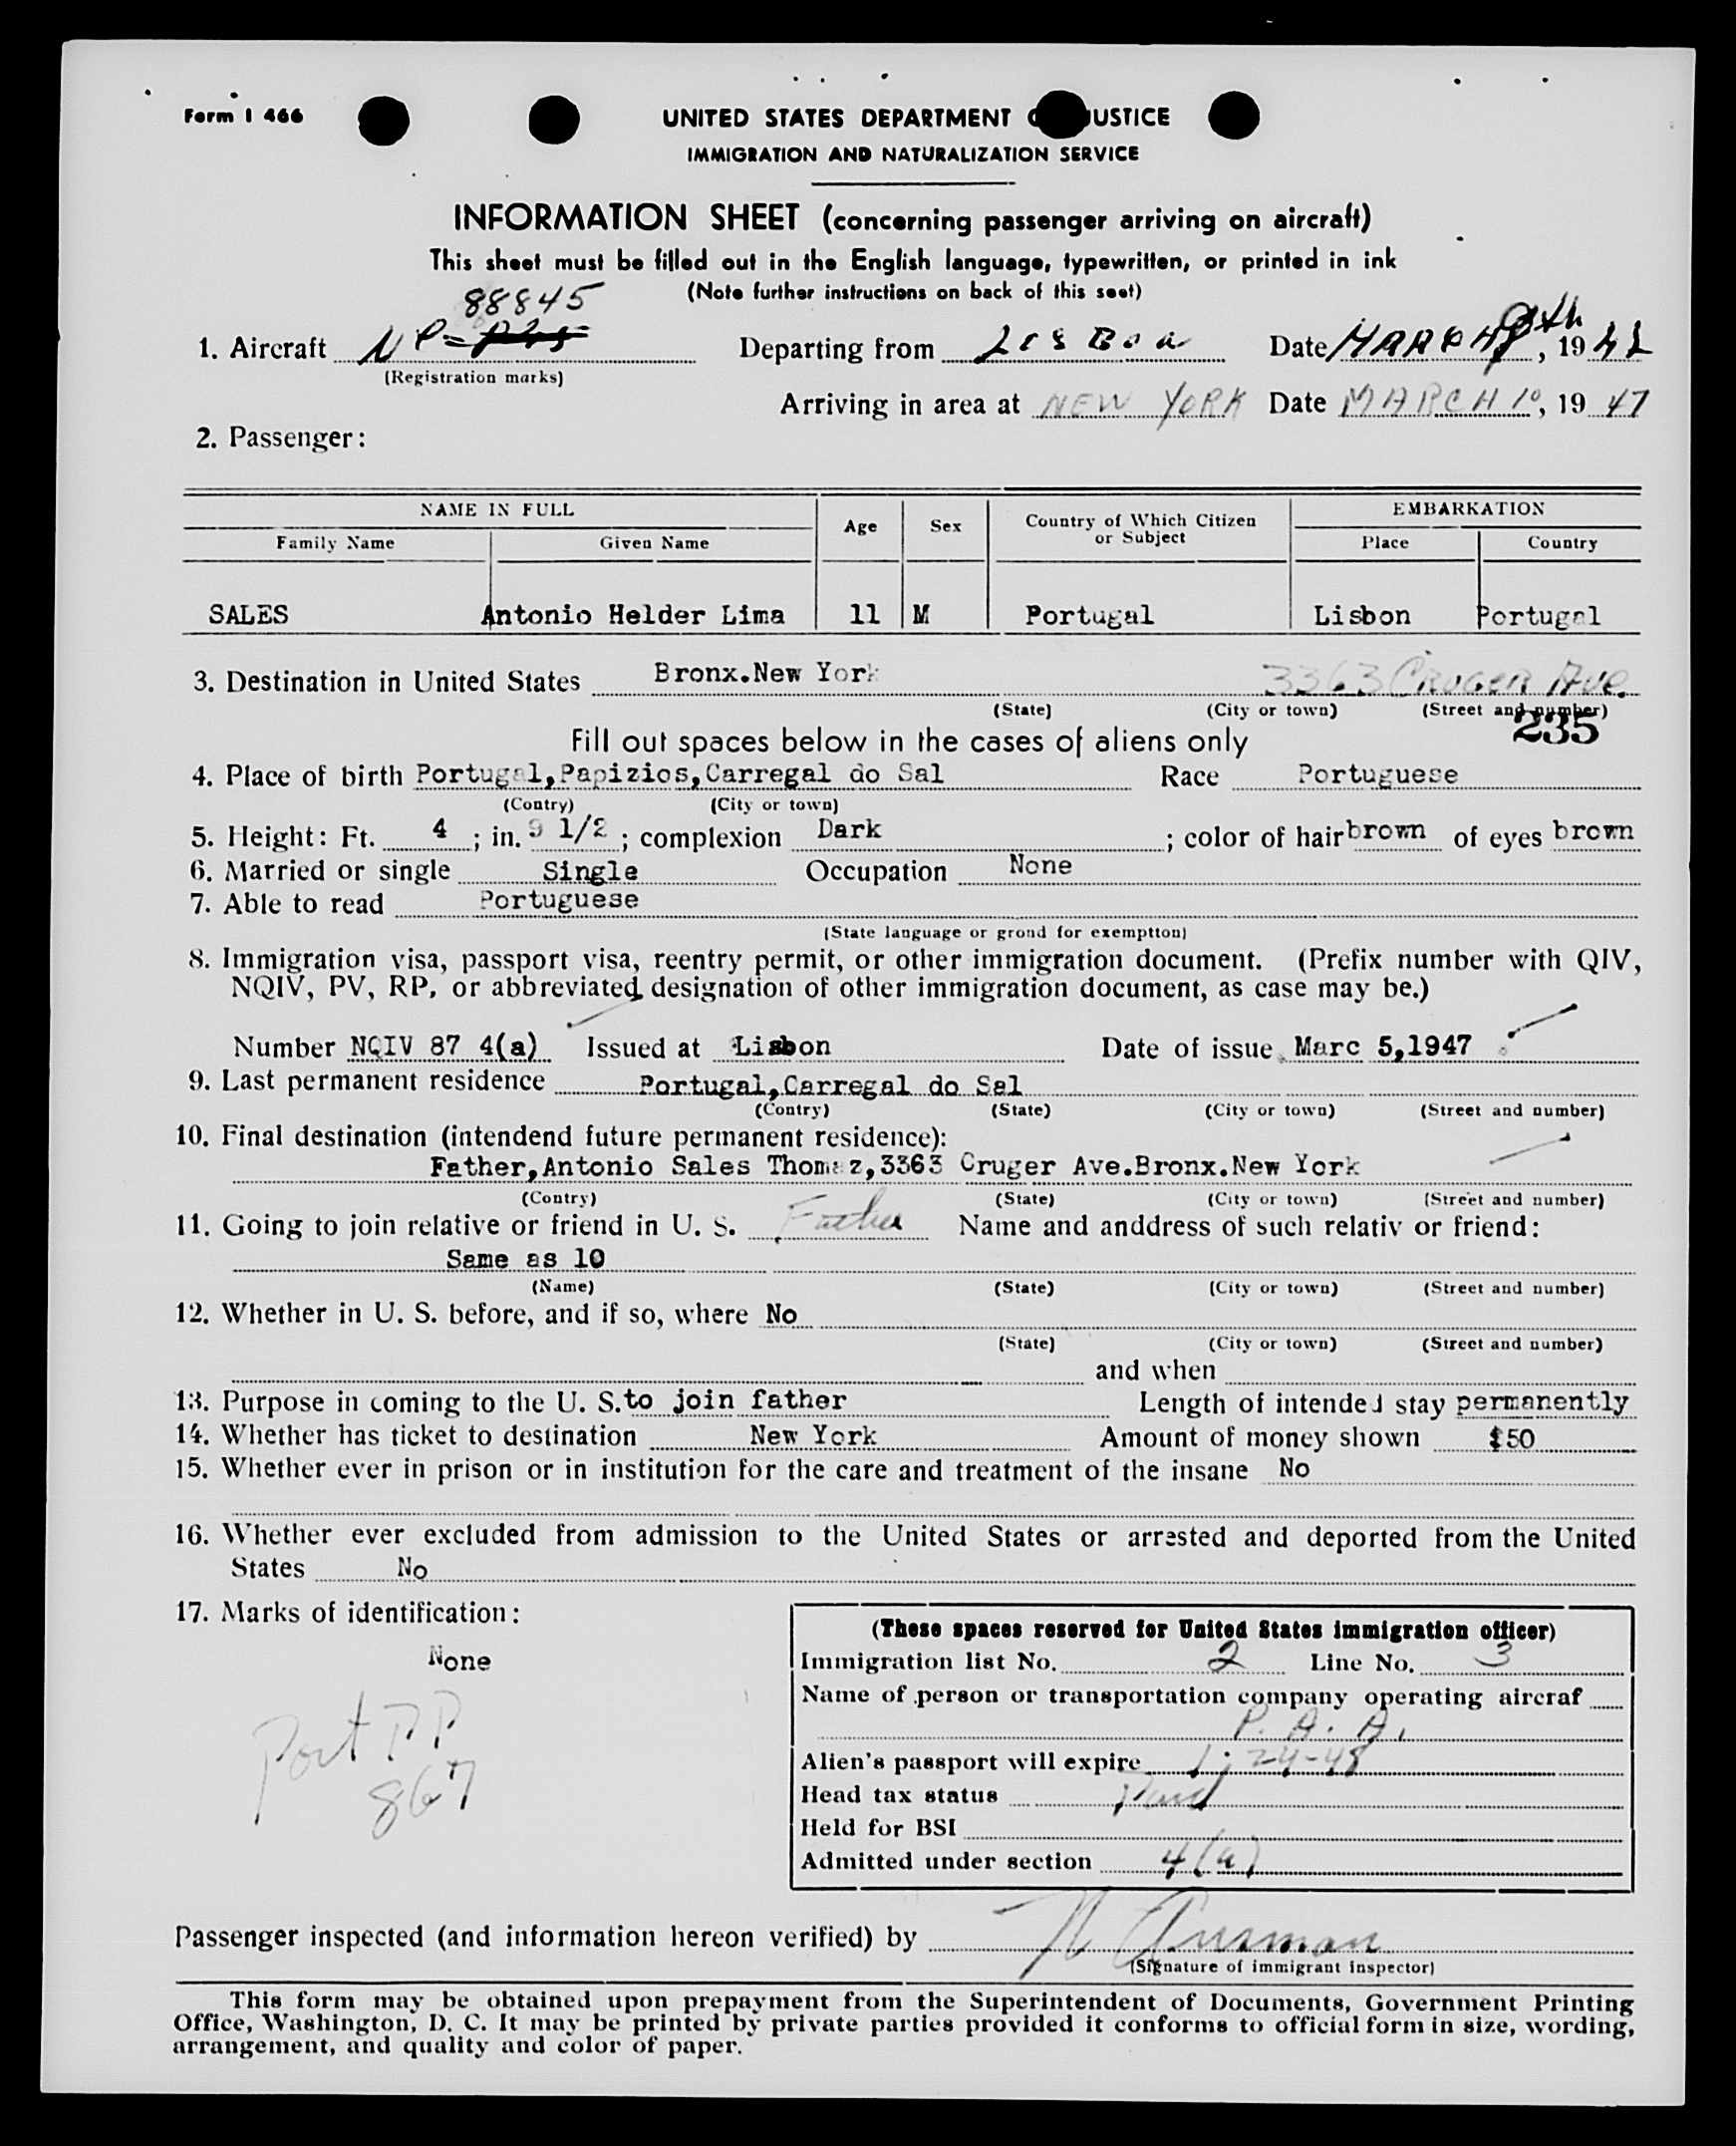 Form I 466
UNITED STATES DEPARTMENT USTICE
IMMIGRATION AND NATURALIZATION SERVICE
INFORMATION SHEET (concerning passenger arriving on aircraft)
This sheet must be filled out in the English language, typewritten, or printed in ink
(Note further instructions on back of this seet)
88845
1. Aircraft NP- Departing from Lisboa Date MARCH 9th, 19
(Registration marks)
Arriving in area at NEW YORK Date MARCH 10, 19 47
2. Passenger:
NAME IN FULL Age Sex Country of Which Citizen or Subject EMBARKATION
Family Name Given Name Place Country
SALES Antonio Helder Lima 11 M Portugal Lisbon Portugal
3. Destination in United States Bronx.New York 3363 CRUGER AVE.
(State) (City or town) (Street and number)
235
Fill out spaces below in the cases of aliens only
4. Place of birth Portugal,Papizios,Carregal do Sal Race Portuguese
(Contry) (City or town)
5. Height: Ft. 4 ; in. 9 1/2 ; complexion Dark ; color of hair brown of eyes brown
6. Married or single Single Occupation None
7. Able to read Portuguese
(State language or grond for exemptton)
8. Immigration visa, passport visa, reentry permit, or other immigration document. (Prefix number with QIV,
NQIV, PV, RP, or abbreviated designation of other immigration document, as case may be.)
Number NQIV 87 4(a) Issued at Lisbon Date of issue Marc 5,1947
9. Last permanent residence Portugal,Carregal do Sal
(Contry) (State) (City or town) (Street and number)
10. Final destination (intendend future permanent residence):
Father,Antonio Sales Thomaz,3363 Cruger Ave.Bronx.New York
(Contry) (State) (City or town) (Street and number)
11. Going to join relative or friend in U. S. Father Name and anddress of such relativ or friend:
Same as 10
(Name) (State) (City or town) (Street and number)
12. Whether in U. S. before, and if so, where No
(State) (City or town) (Street and number)
and when
13. Purpose in coming to the U. S. to join father Length of intended stay permanently
14. Whether has ticket to destination New York Amount of money shown $50
15. Whether ever in prison or in institution for the care and treatment of the insane No
16. Whether ever excluded from admission to the United States or arrested and deported from the United
States No
17. Marks of identification:
None
Port PP
867
(These spaces reserved for United States immigration officer)
Immigration list No. 2 Line No. 3
Name of person or transportation company operating aircraf
P. A. A.
Alien's passport will expire 1-24-48
Head tax status Paid
Held for BSI
Admitted under section 4(a)
Passenger inspected (and information hereon verified) by
(Signature of immigrant inspector)
This form may be obtained upon prepayment from the Superintendent of Documents, Government Printing
Office, Washington, D. C. It may be printed by private parties provided it conforms to official form in size, wording,
arrangement, and quality and color of paper.